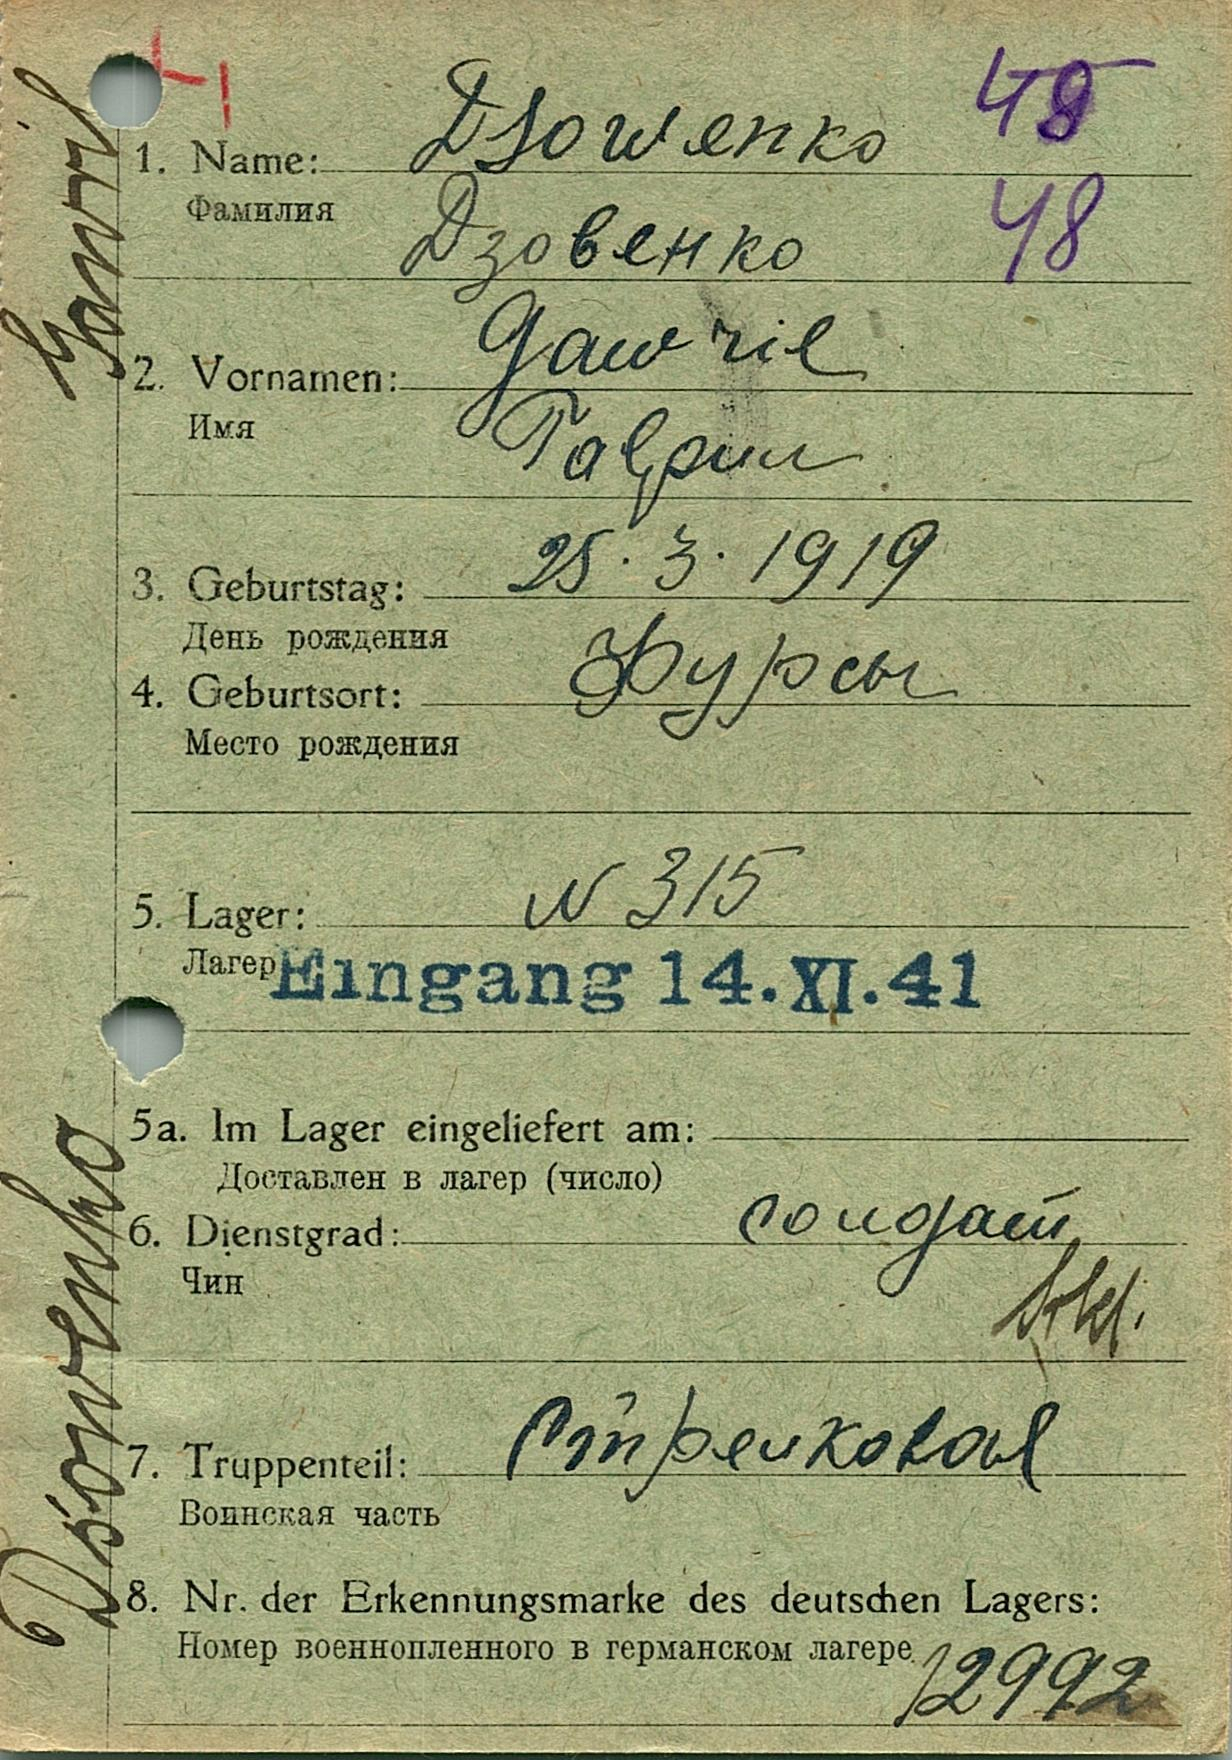 48
1. Name: Dsowenko
Фамилия
48
Дзовенко
2. Vornamen: Gawril
Имя
Гаврил
3. Geburtstag: 25. 3. 1919
День рождения
4. Geburtsort: Фурсы
Место рождения
5. Lager: N 315
Лагер
Eingang 14.XI.41
5a. Im Lager eingeliefert am:
Доставлен в лагер (число)
6. Dienstgrad: солдат
Чин
7. Truppenteil: Стрелковая
Воинская часть
8. Nr. der Erkennungsmarke des deutschen Lagers:
Номер военнопленного в германском лагере
12992
Dsowenko Gawril